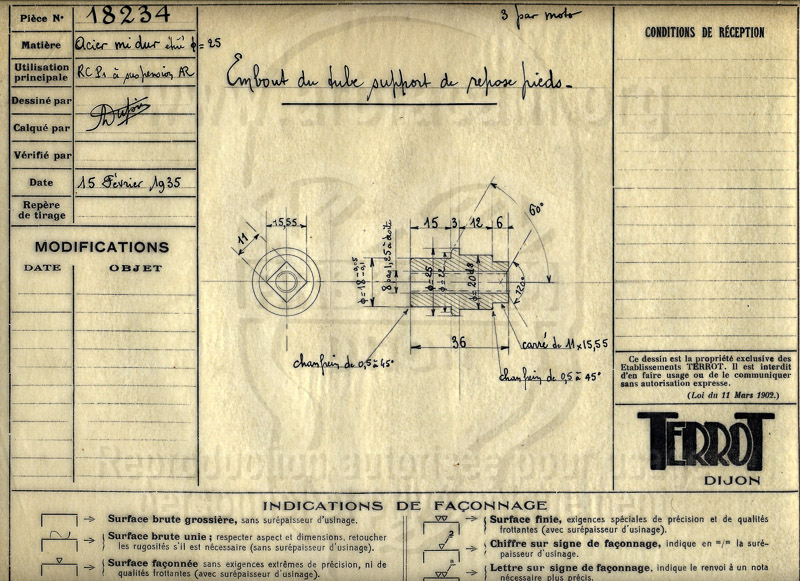 Pièce N° 18234
Matière Acier mi dur étiré ϕ = 25
Utilisation principale RCP1 à suspension AR
Dessiné par
Calqué par
Vérifié par
Date 15 Février 1935
Repère de tirage
MODIFICATIONS
DATE OBJET
3 par moto
Embout du tube support de repose pieds.
11
15,55
15 3 12 6
60°
ϕ=18 -0,05 -0,1
8 pas 1,25 à droite
ϕ=25
ϕ=22
ϕ=20d8
120°
36
carré de 11x15,55
chanfrein de 0,5 à 45°
chanfrein de 0,5 à 45°
CONDITIONS DE RÉCEPTION
Ce dessin est la propriété exclusive des
Etablissements TERROT. Il est interdit
d'en faire usage ou de le communiquer
sans autorisation expresse.
(Loi du 11 Mars 1902.)
TERROT
DIJON
INDICATIONS DE FAÇONNAGE
Surface brute grossière, sans surépaisseur d'usinage.
Surface brute unie ; respecter aspect et dimensions, retoucher
les rugosités s'il est nécessaire (sans surépaisseur d'usinage).
Surface façonnée sans exigences extrêmes de précision, ni de
qualités frottantes (avec surépaisseur d'usinage).
Surface finie, exigences spéciales de précision et de qualités
frottantes (avec surépaisseur d'usinage).
2
Chiffre sur signe de façonnage, indique en m/m la suré-
paisseur d'usinage.
Lettre sur signe de façonnage, indique le renvoi à un nota
nécessaire plus précis.
Reproduction autorisée pour